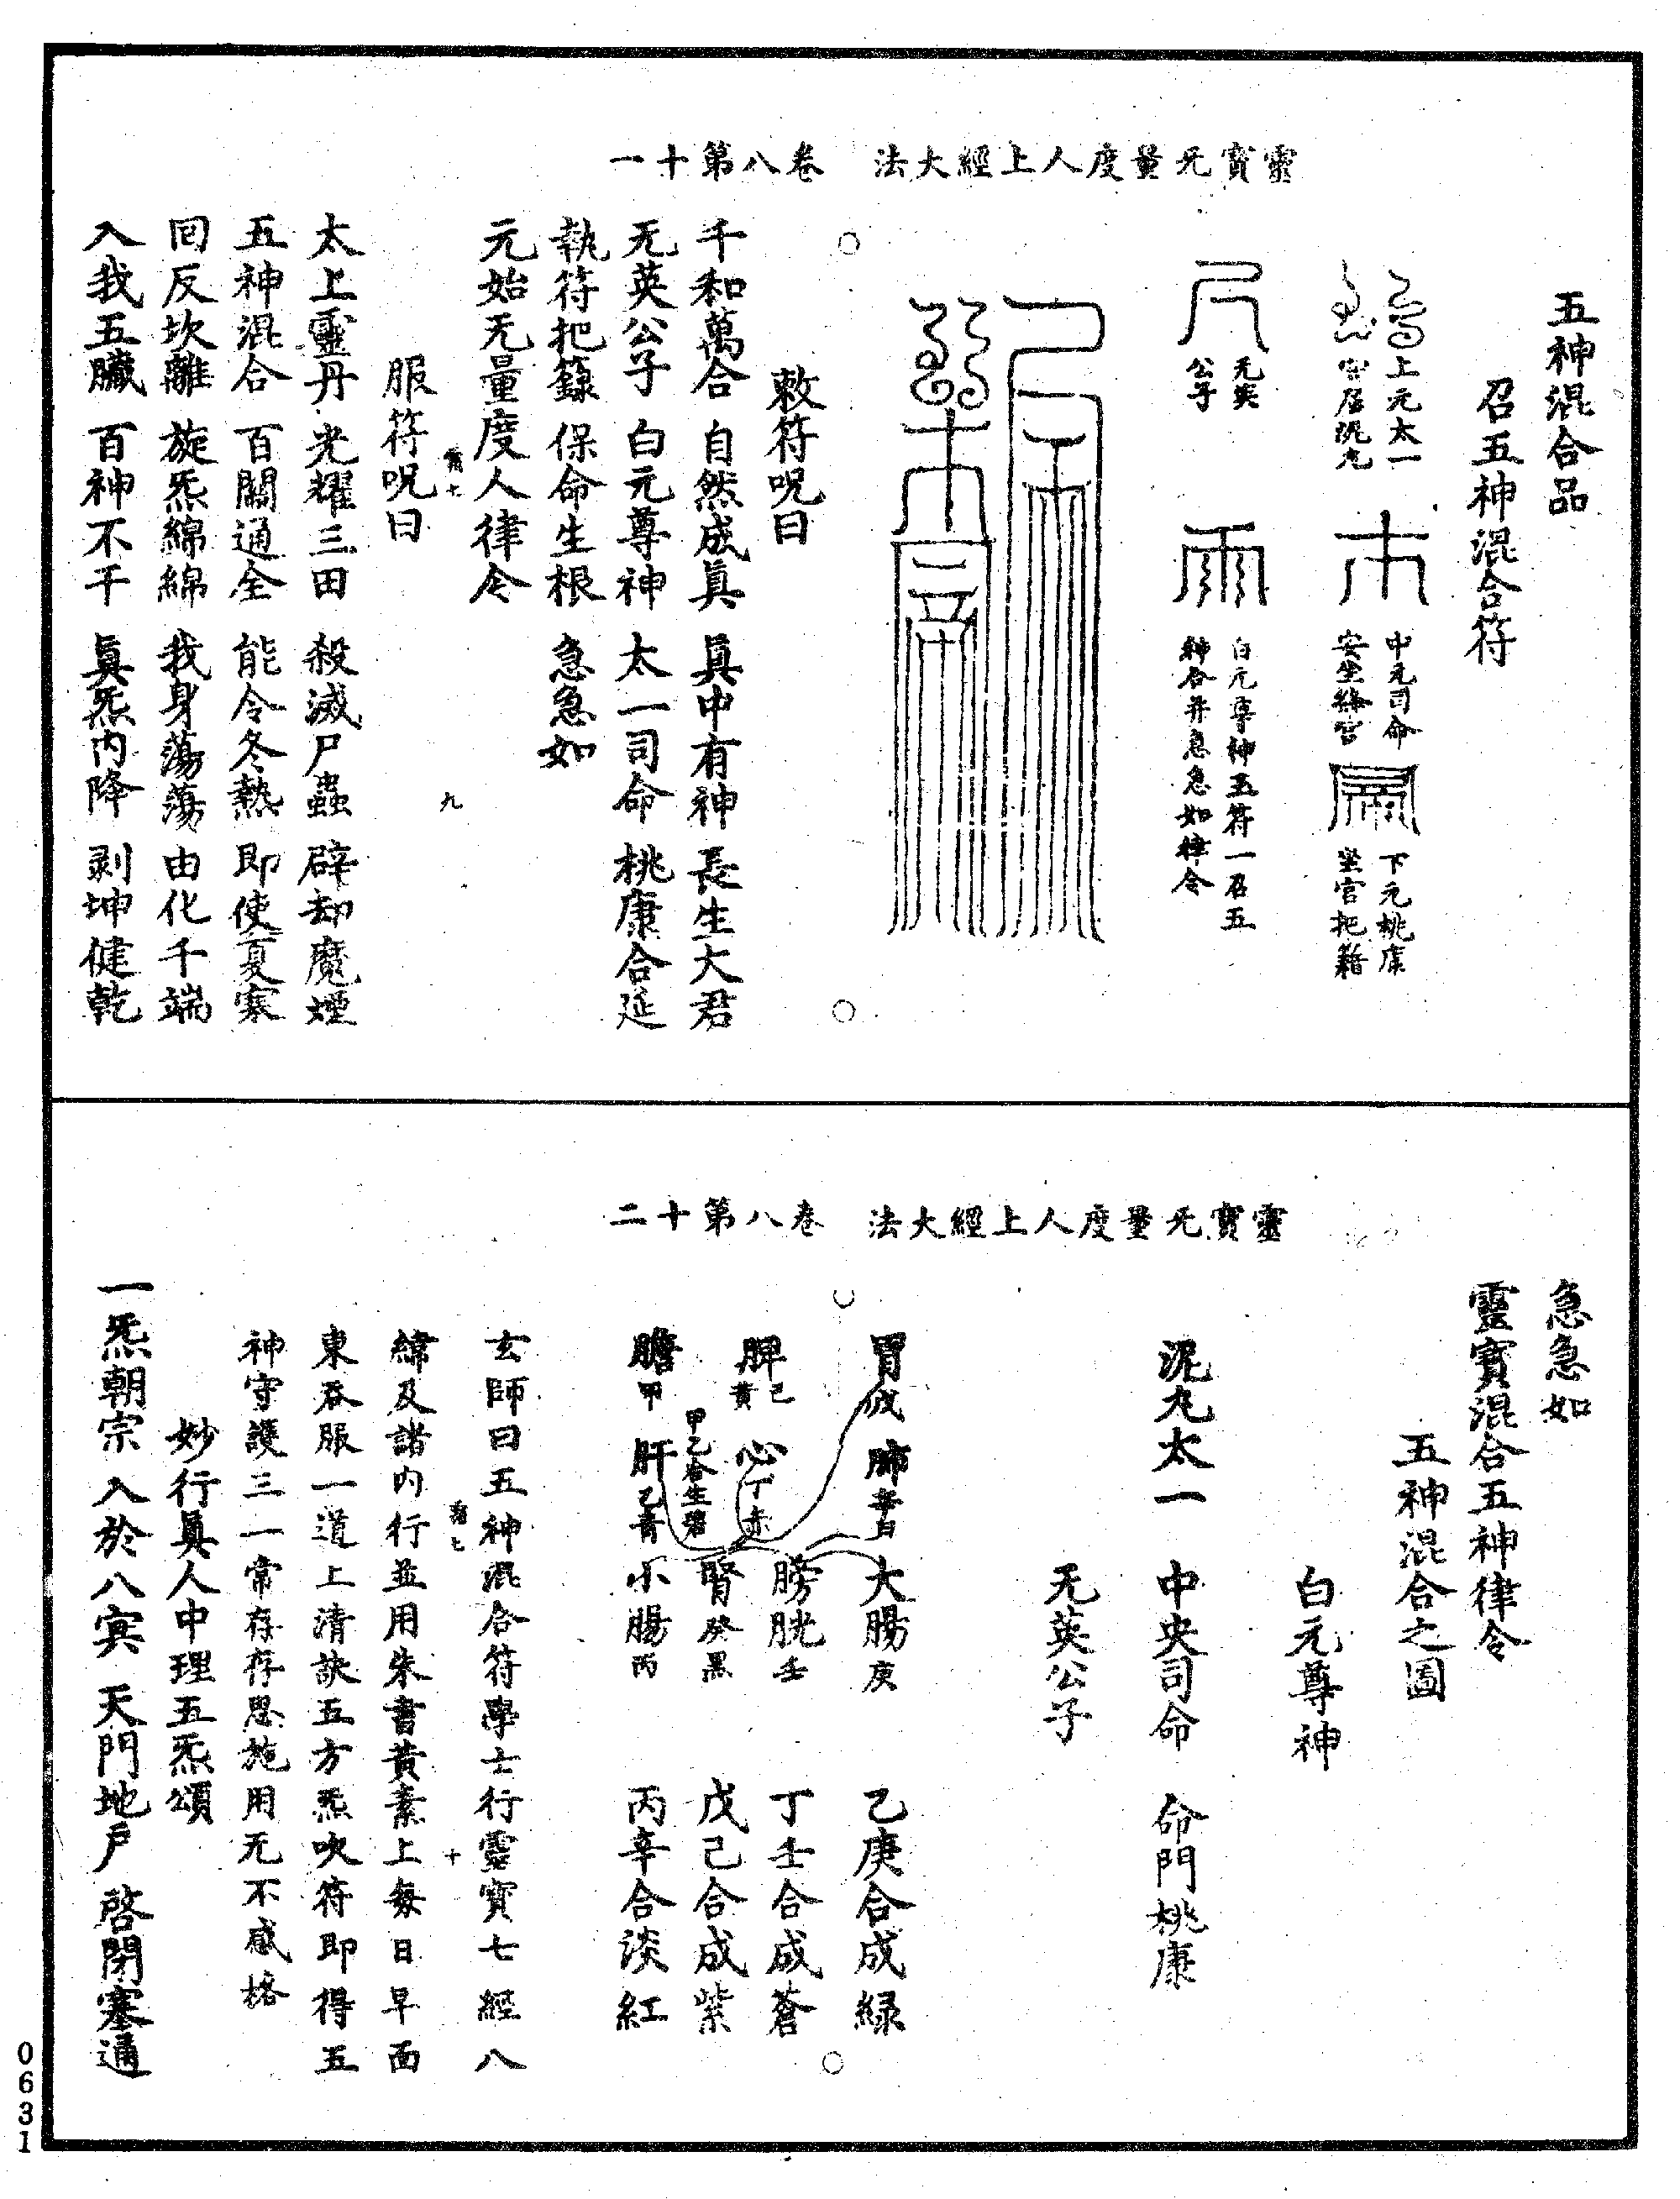 靈寶无量度人上經大法　卷八第十一
五神混合品
召五神混合符
上元太一
宮居泥丸
中元司命
安坐絳宮
下元桃康
坐宮把籍
无英
公子
白元尊神五符一召五
神合并急急如律令
敕符呪曰
千和萬合　自然成眞　眞中有神　長生大君
无英公子　白元尊神　太一司命　桃康合延
執符把籙　保命生根　急急如
元始无量度人律令
九
服符呪曰
太上靈丹　光耀三田　殺滅尸蟲　辟却魔煙
五神混合　百關通全　能令冬熱　即使夏寒
回反坎離　旋炁綿綿　我身蕩蕩　由化千端
入我五臟　百神不干　眞炁內降　剥坤健乾
靈寶无量度人上經大法　卷八第十二
急急如
靈寶混合五神律令
五神混合之圖
白元尊神
泥丸太一　中央司命　命門桃康
无英公子
胃戊　肺辛白　大腸庚　乙庚合成緑
脾己黃　心丁赤　膀胱壬　丁壬合成蒼
甲乙合生碧　腎癸黑　戊己合成紫
膽甲　肝乙青　小腸丙　丙辛合淡紅
玄師曰五神混合符學士行靈寶七經八
十
緯及諸內行並用朱書黃素上每日早面
東吞服一道上清訣五方炁吹符即得五
神守護三一常存存思施用无不感格
妙行眞人中理五炁頌
一炁朝宗　入於八㝠　天門地戶　啓閉塞通
0631